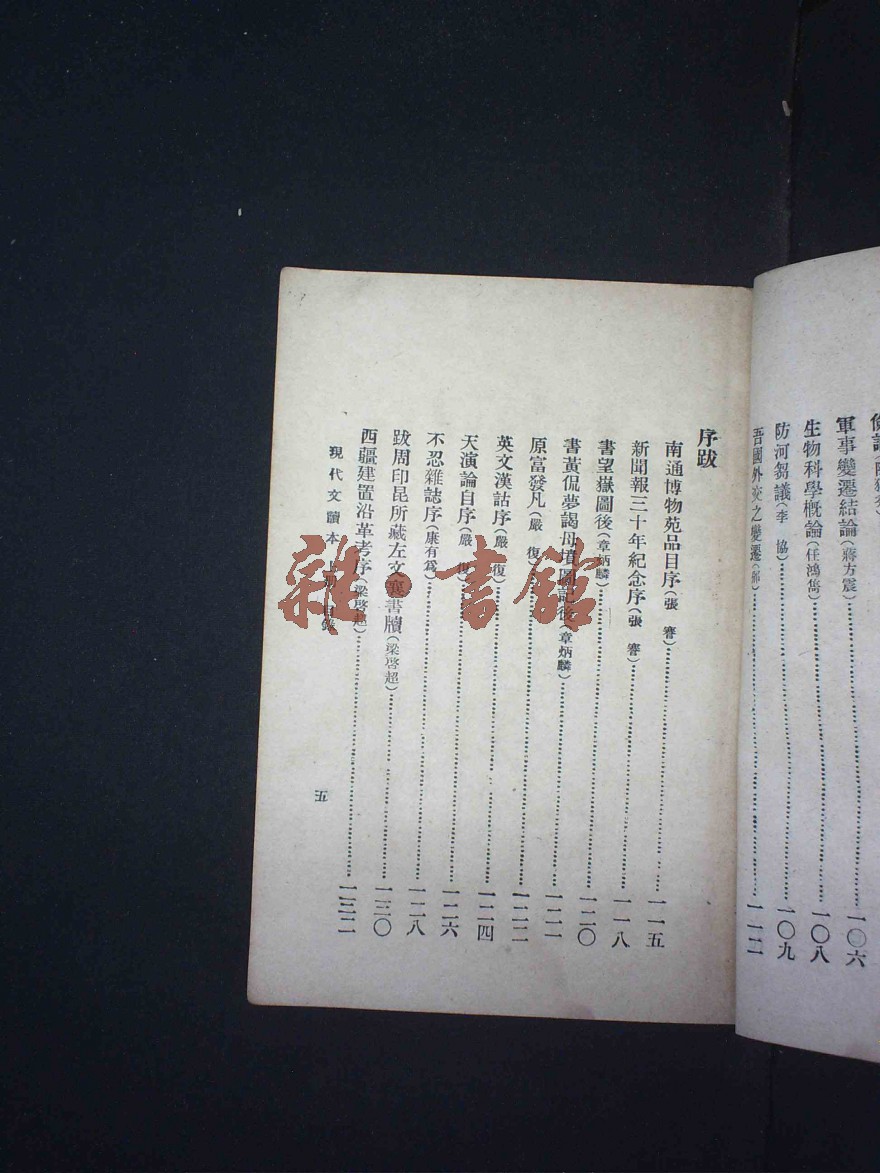 軍事變遷結論(蔣方震)……一〇六
生物科學概論(任鴻雋)……一〇八
防河芻議(李 協)……一〇九
吾國外交之變遷……一一二
序跋
南通博物苑品目序(張 謇)……一一五
新聞報三十年紀念序(張 謇)……一一八
書望嶽圖後(章炳麟)……一二〇
書黃侃夢謁母墳圖記後(章炳麟)……一二一
原富發凡(嚴 復)……一二二
英文漢詁序(嚴 復)……一二四
天演論自序(嚴 復)……一二六
不忍雜誌序(康有爲)……一二八
跋周印昆所藏左文襄書牘(梁啓超)……一三〇
西疆建置沿革考序(梁啓超)……一三二
現代文牘本 上册 目錄
五
雜·書館